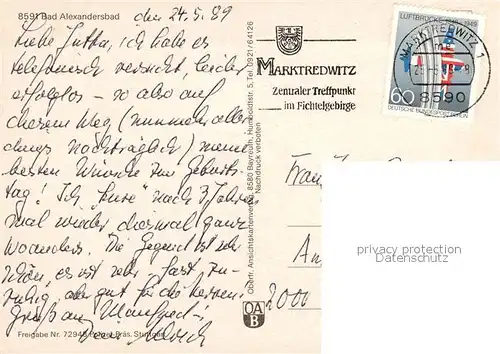 8591 Bad Alexandersbad
den 24.5.89
Liebe Jutta, ich habe es
telefonisch versucht leider
erfolglos – so also auf
diesem Weg (nunmehr aller
dings nachträglich) meine
besten Wünsche zum Geburts
tag! Ich "kure" nach 3 Jahren
mal wieder diesmal ganz
woanders. Die Gegend ist sehr
schön, es ist sehr, fast zu
ruhig, aber gut für die Nerven.
Gruß an
Freigabe Nr. 72948 Stuttgart
Oberfr. Ansichtskartenverlag 8580 Bayreuth, Humboldtstr. 5, Tel. 0921/64126
Nachdruck verboten
OA
B
MARKTREDWITZ
Zentraler Treffpunkt
im Fichtelgebirge
MARKTREDWITZ 1
8590
LUFTBRÜCKE 1949
60
DEUTSCHE BUNDESPOST BERLIN
Frau
An
2000
privacy protection